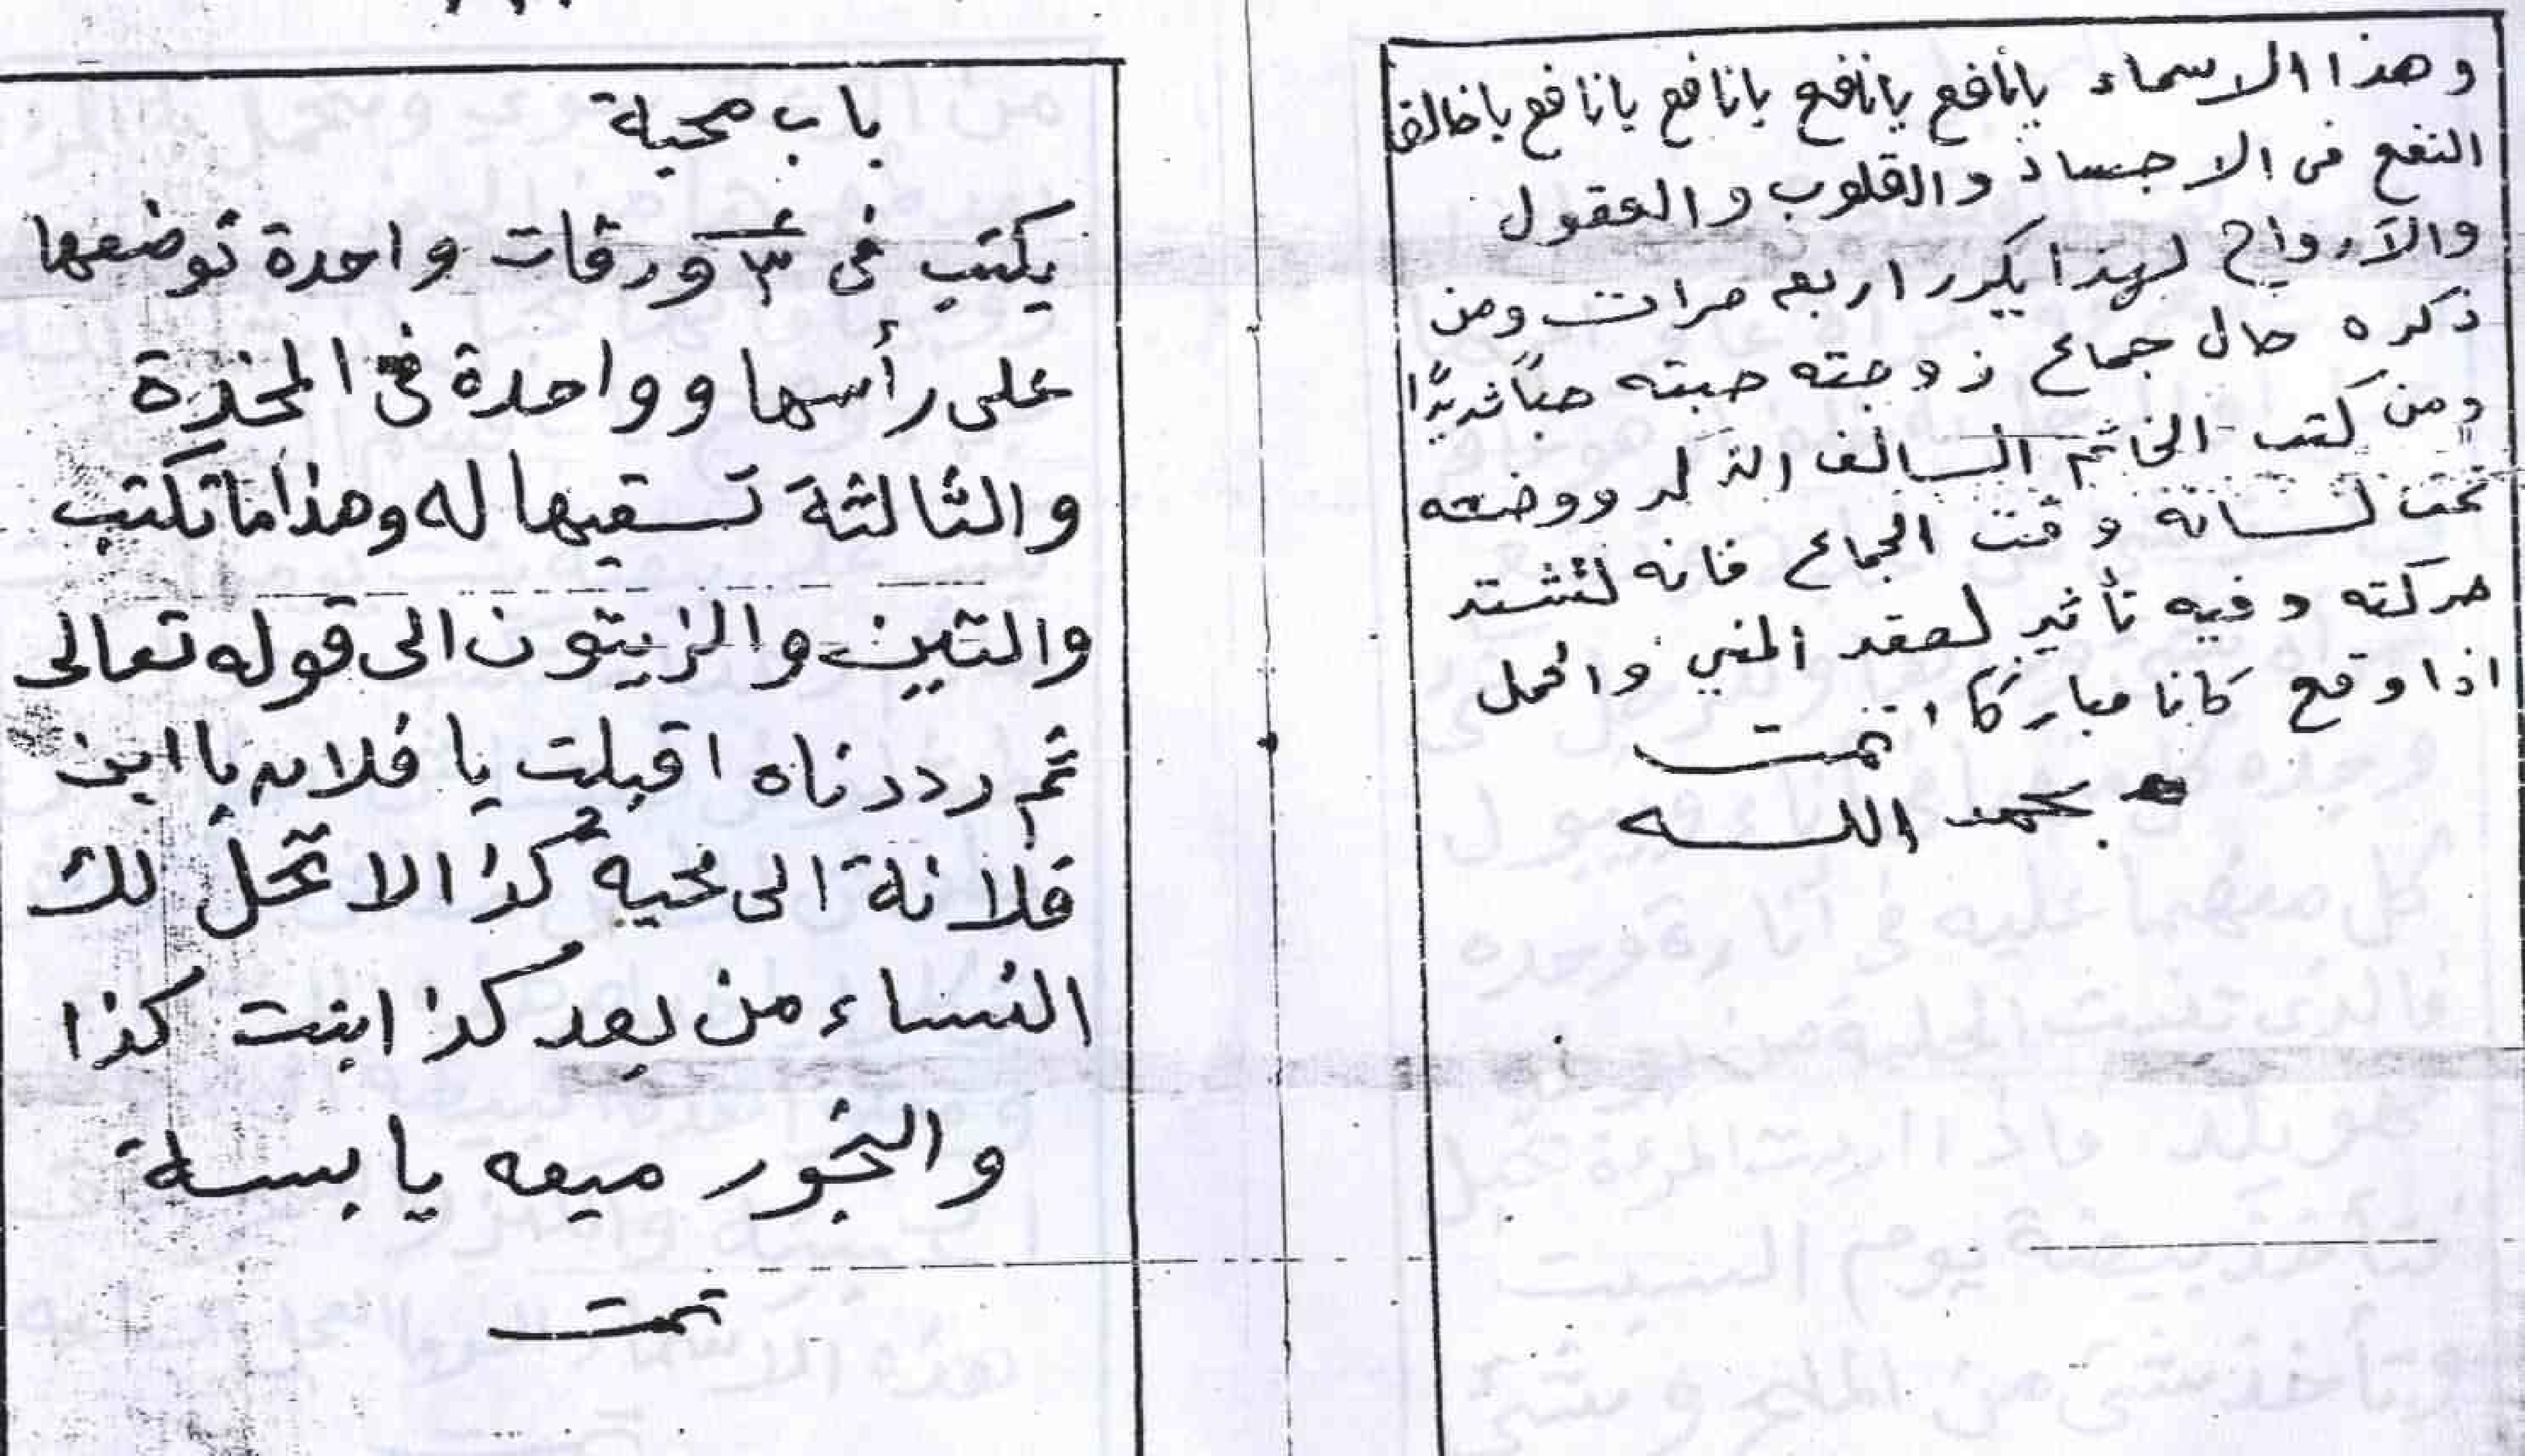 وهذا الاسماء يانافع يانافع يانافع يانافع ياخالق
النفع فى الاجساد والقلوب والعقول
والارواح لهذا يكرر اربعه مرات ومن
ذكره حال جماع زوجته حبته حباً شديدًا
ومن كتب الخاتم السالف الذكر ووضعه
تحت لسانه وقت الجماع فانه لتشتد
حركته وفيه تأثير لعقد المني والحمل
اذا وقع كانا مباركا تمت
بحمد الله
باب محبة
يكتب فى ٣ ورقات واحدة توضعها
على رأسها وواحدة فى المخدة
والثالثة تسقيها له وهذا ماتكتب
والتين والزيتون الى قوله تعالى
ثم رددناه اقبلت يا فلان يا ابن
فلانة الى محبه كذا لا تحل لك
النساء من بعد كذا بنت كذا
والبخور ميعه يابسة
تمت